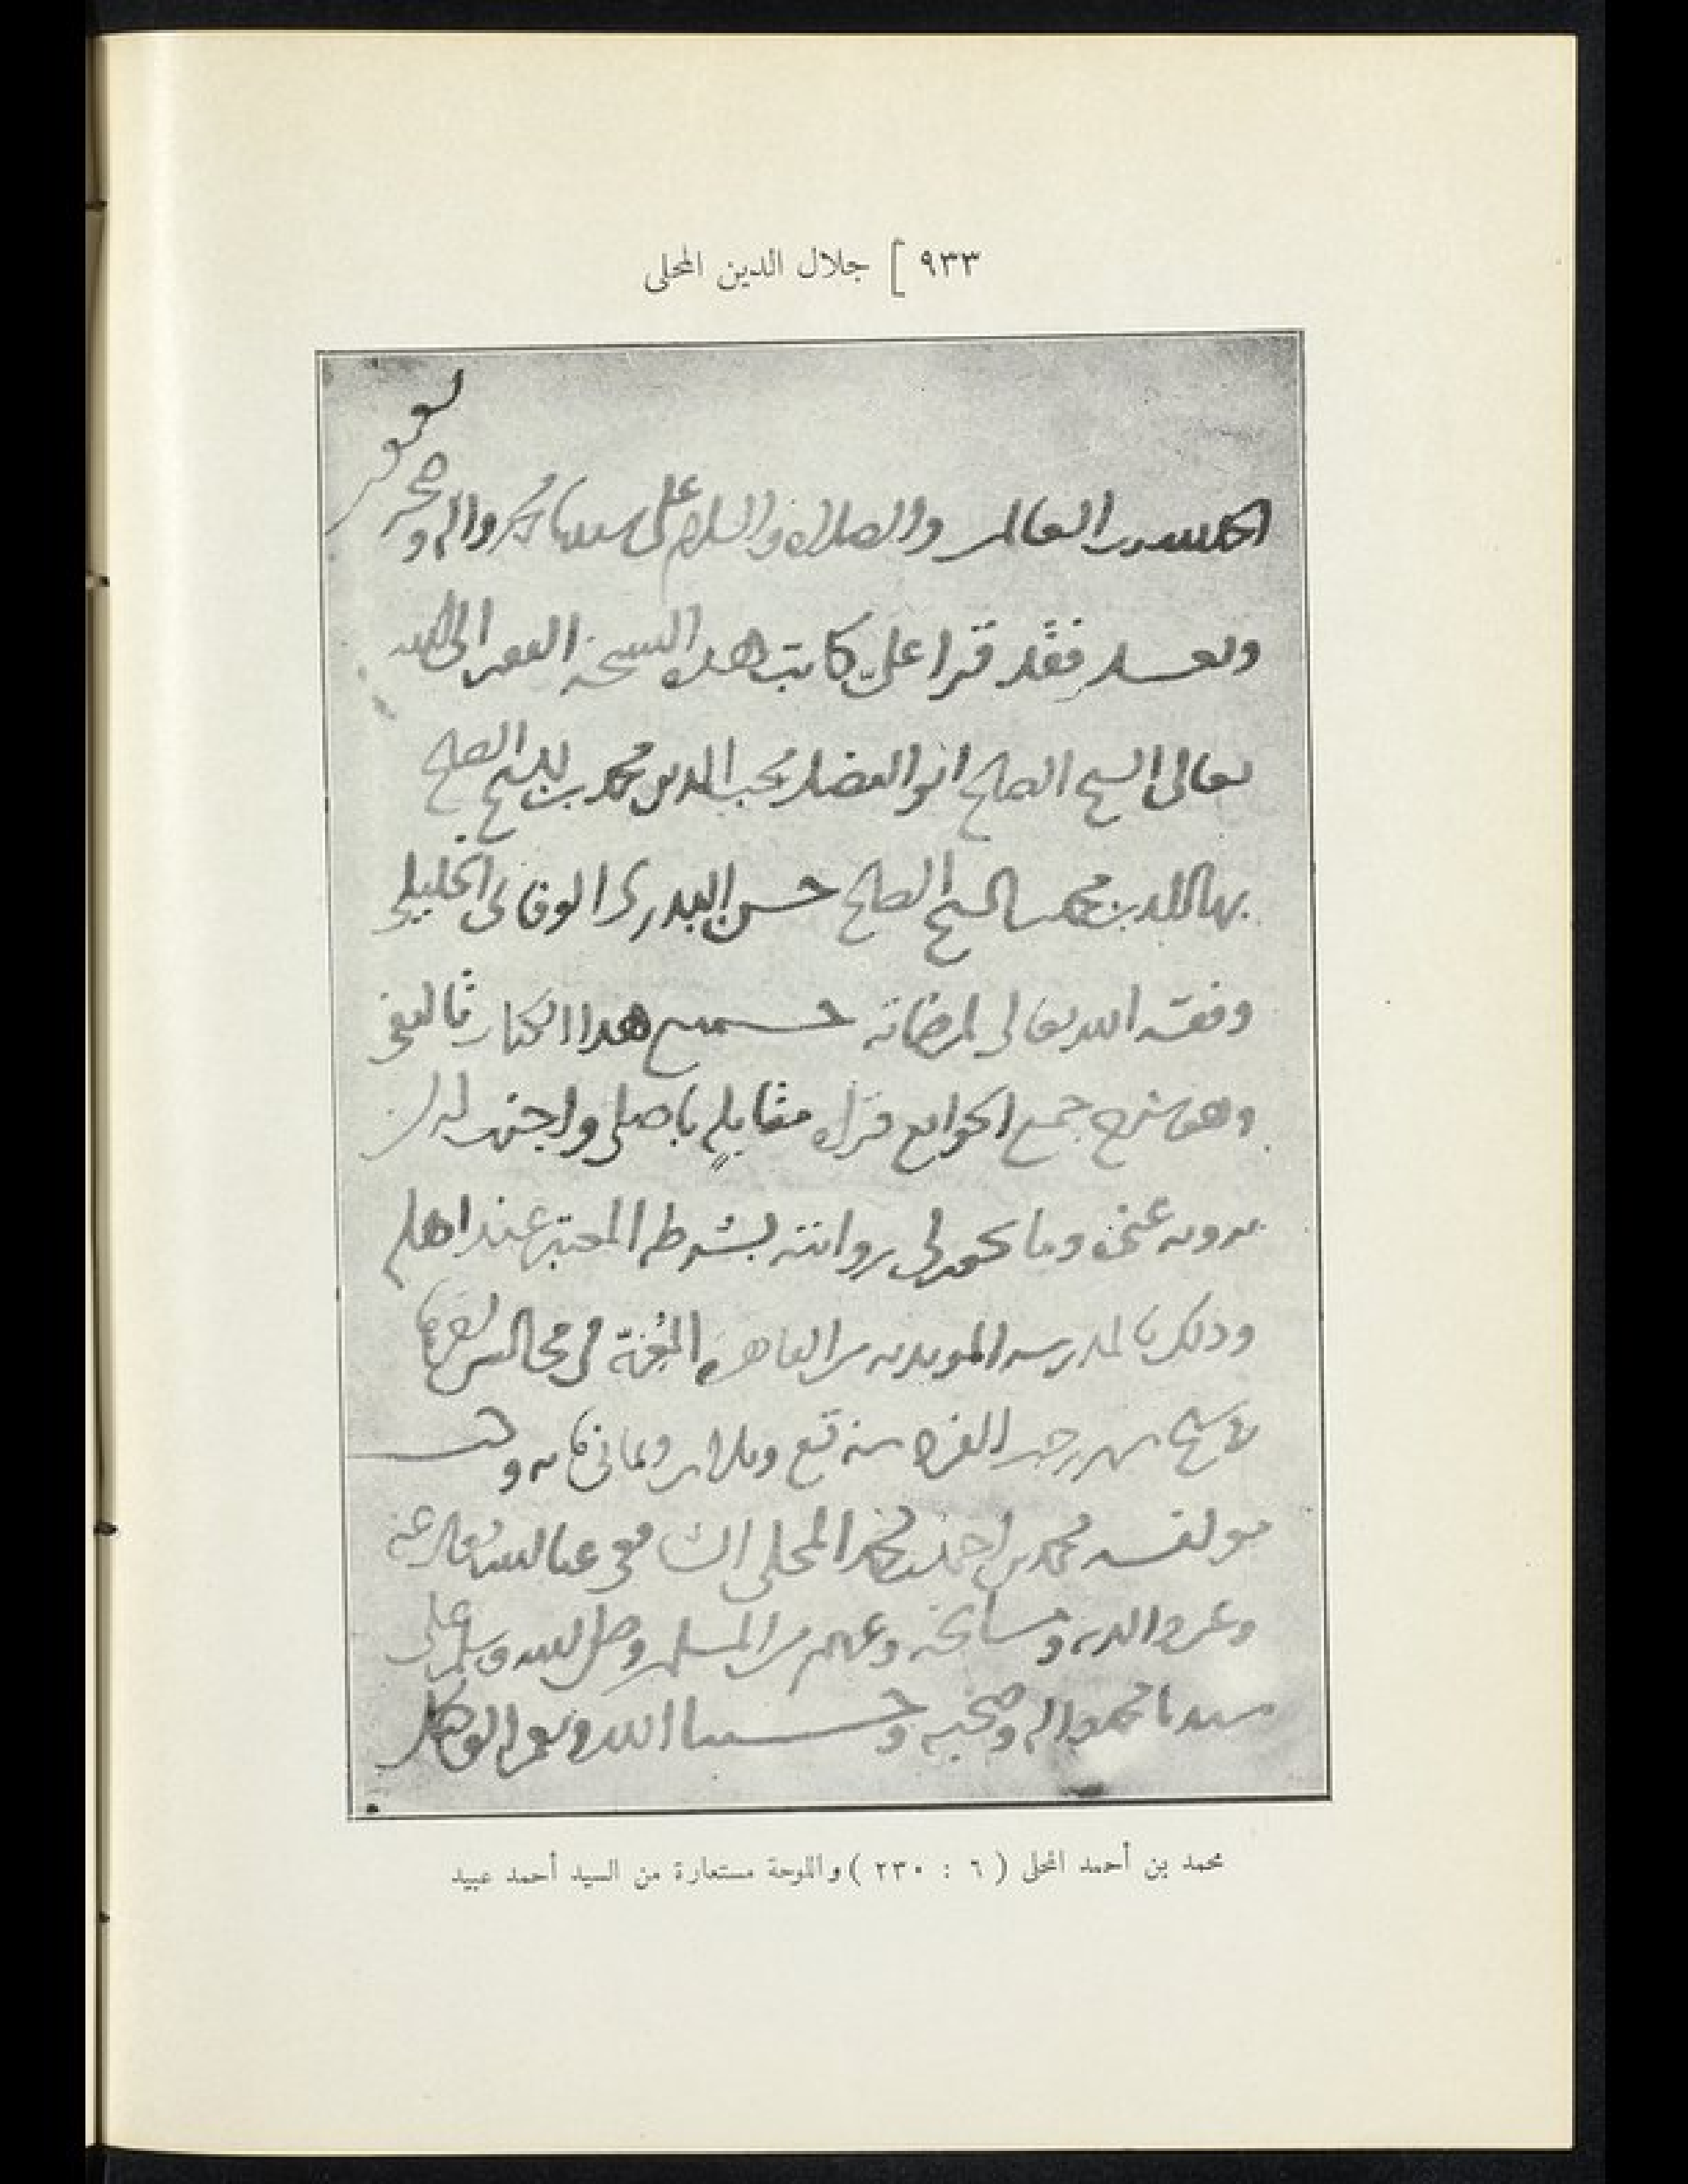 ٩٣٣ [ جلال الدين المحلى
الحمد لله رب العالمين والصلاة والسلام على سيدنا محمد واله وصحبه
وبعد فقد قرا علىّ كاتب هذه النسخة الفقير الى الله
تعالى الشيخ الصالح ابو الفضل محب الدين محمد بن الشيخ الصالح
بها الدين محمد بن الشيخ الصالح حسن البدرى الوفائى الخليلى
وفقه الله تعالى لمرضاته جميع هذا الكتاب تاليفى
وهو شرح جمع الجوامع قراة مقابلة باصلى واجزت له ان
يرويه عنى وما يجوز لى روايته بشرطه المعتبر عند اهله
وذلك بالمدرسة المويدية من القاهرة المعزية فى مجالس
تاسع شهر رجب الفرد سنة تسع وثلاثين وثمانى ماية وكتب
مولفه محمد بن احمد بن محمد المحلى الشافعى عفا الله تعالى عنه
وعن والديه ومشايخه وعن المسلمين وصلى الله وسلم على
سيدنا محمد واله وصحبه وحسبنا الله ونعم الوكيل
محمد بن أحمد المحلى ( ٦ : ٢٣٠ ) واللوحة مستعارة من السيد أحمد عبيد